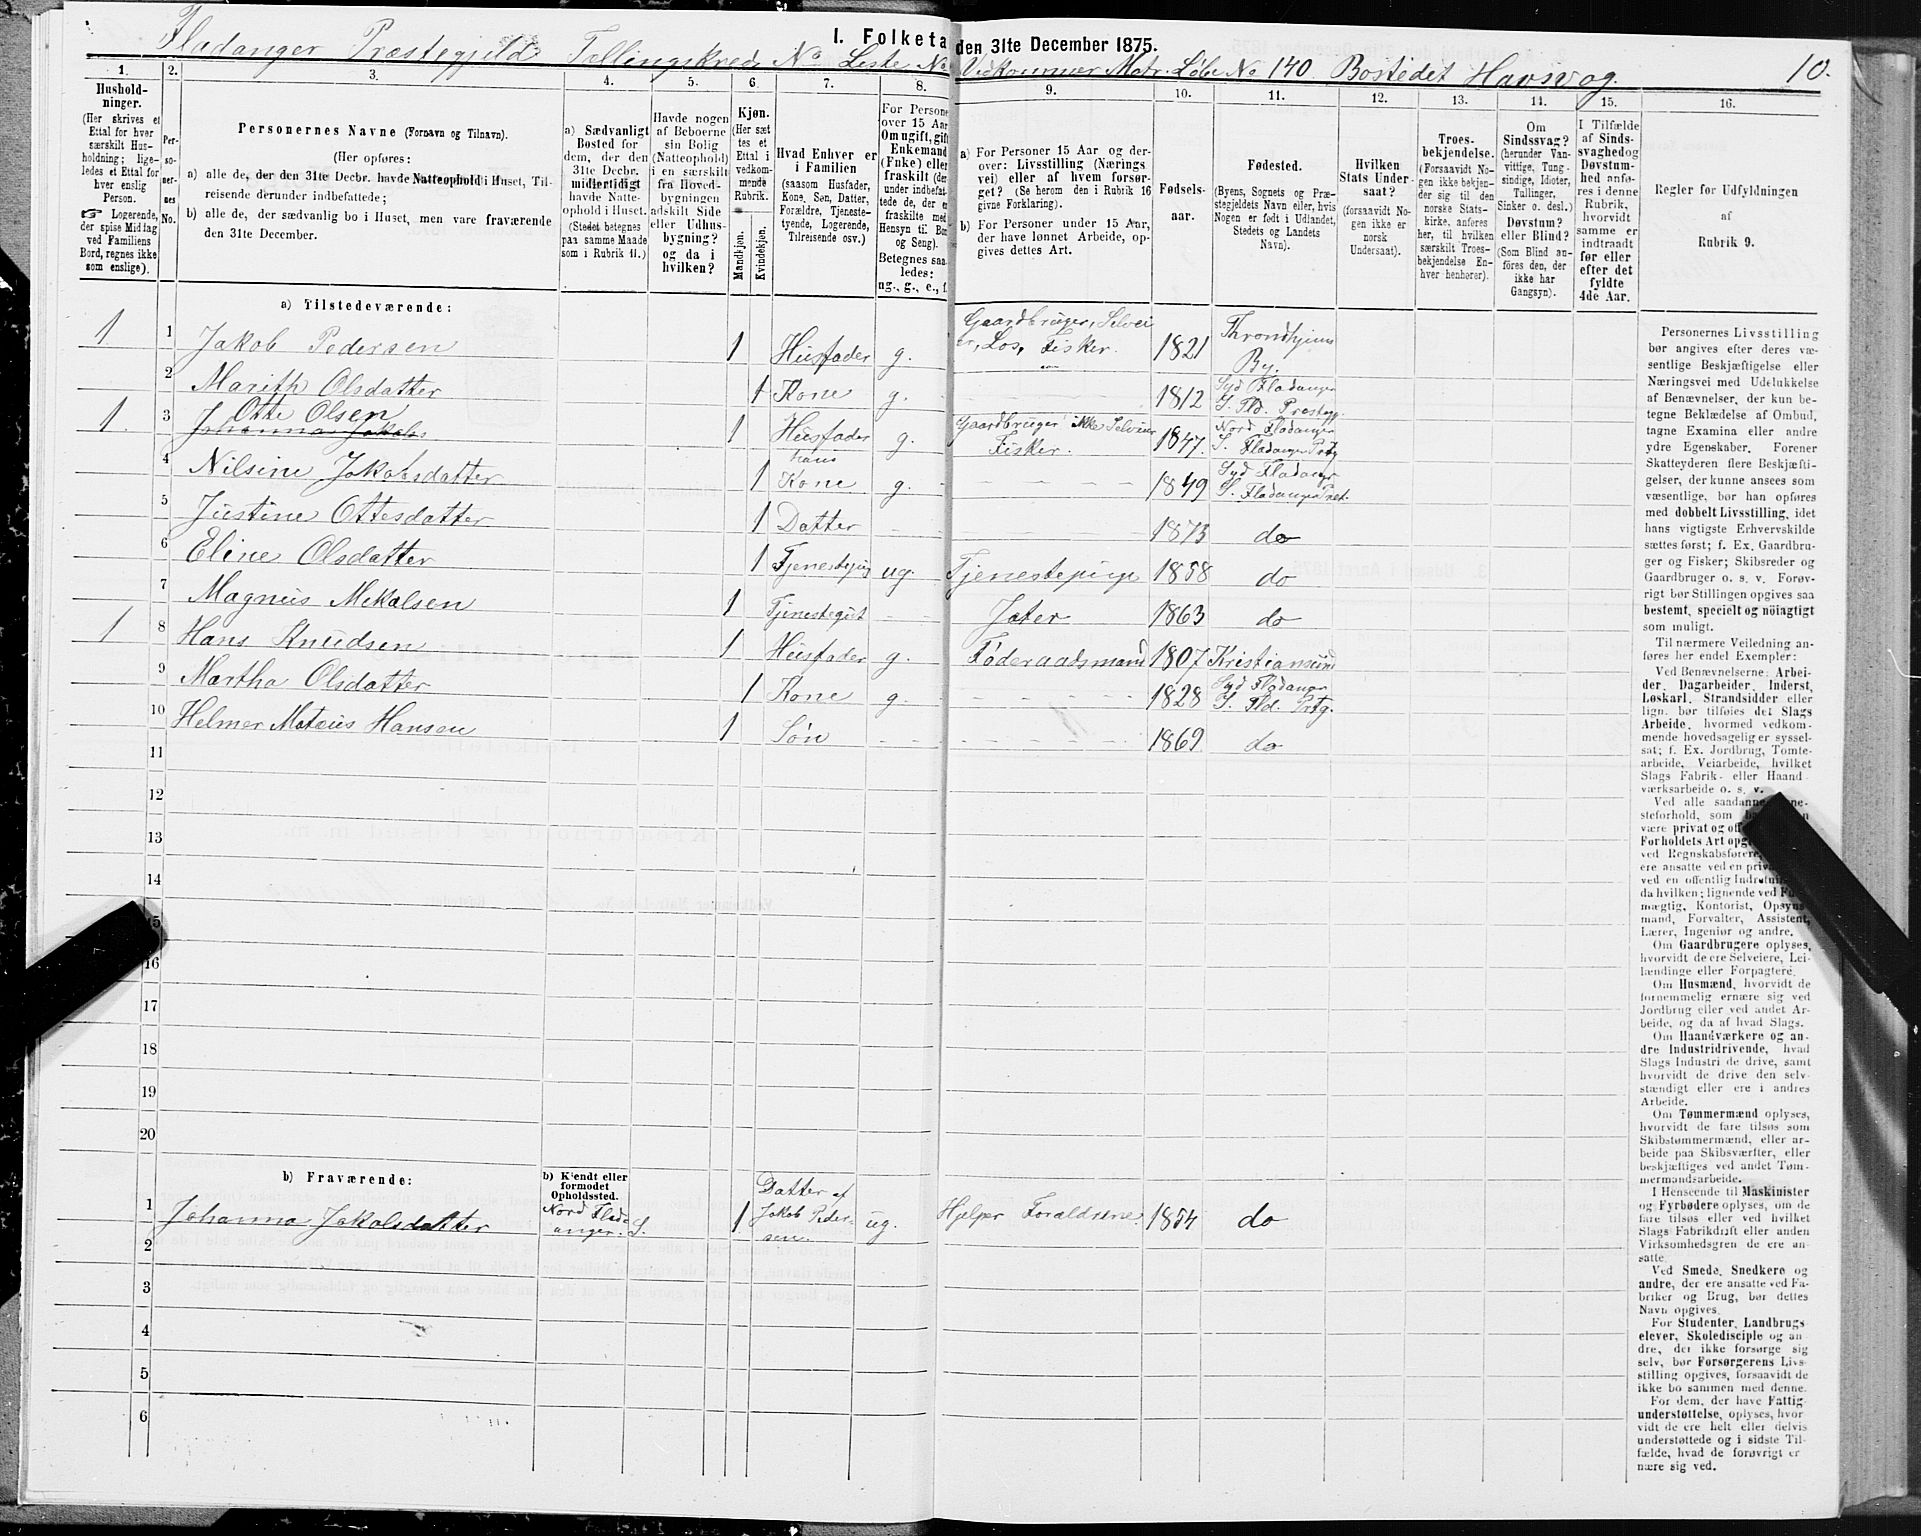 I. Folketa den 31te December 1875.
Fladanger Præstegjeld Tellingskreds No Liste No Vedkommer Matr. Løbe No 140 Bostedet Havsvog. 10.
1. 2. 3. 4. 5. 6. 7. 8. 9. 10. 11. 12. 13. 14. 15. 16.
Hushold-
ninger.
(Her skrives et
Ettal for hver
særskilt Hus-
holdning; lige-
ledes et Ettal for
hver enslig
Person.
☞ Logerende,
der spise Middag
ved Familiens
Bord, regnes ikke
som enslige).
Per-
so-
ner-
nes
No.
Personernes Navne (Fornavn og Tilnavn).
(Her opføres:
a) alle de, der den 31te Decbr. havde Natteophold i Huset, Til-
reisende derunder indbefattede;
b) alle de, der sædvanlig bo i Huset, men vare fraværende
den 31te December.
a) Sædvanligt
Bosted for
dem, der den
31te Decbr.
midlertidigt
havde Natte-
ophold i Huset.
(Stedet betegnes
paa samme Maade
som i Rubrik 11.)
Havde nogen
af Beboerne
sin Bolig
(Natteophold)
i en særskilt
fra Hoved-
bygningen
adskilt Side
eller Udhus-
bygning?
og da i
hvilken?
Kjøn.
(Her sæt-
tes et
Ettal i
vedkom-
mende
Rubrik.
Mandkjøn.
Kvindekjøn.
Hvad Enhver er
i Familien
(saasom Husfader,
Kone, Søn, Datter,
Forældre, Tjeneste-
tyende, Logerende,
Tilreisende osv.)
For Persone
over 15 Aar
Om ugift, gift
Enkemand
(Fnke) eller
fraskilt (der-
under indbefat-
tede de, der e
fraskilte med
Hensyn til Bo
og Seng).
Betegnes saa-
ledes:
ug., g., e., f.
a) For Personer 15 Aar og der-
over: Livsstilling (Nærings
vei) eller af hvem forsør-
get? (Se herom den i Rubrik 16
givne Forklaring).
b) For Personer under 15 Aar,
der have lønnet Arbeide, op-
gives dettes Art.
Fødsels-
aar.
Fødested.
(Byens, Sognets og Præ-
stegjeldets Navn eller, hvis
Nogen er født i Udlandet,
Stedets og Landets
Navn).
Hvilken
Stats Under-
saat?
(forsaavidt No-
gen ikke er
norsk
Undersaat).
Troes-
bekjendelse.
(Forsaavidt No-
gen ikke bekjen-
der sig til den
norske Stats-
kirke, anføres
her, til hvilken
særskilt Troes-
bekjendelse En-
hver henhører).
Om
Sindssvag?
(herunder Van-
vittige, Tung-
sindige, Idioter,
Tullinger,
Sinker o. desl.)
Døvstum?
eller Blind?
(Som Blind an-
føres den, der
ikke har
Gangsyn).
I Tilfælde
af Sinds-
svaghed og
Døvstum-
hed anfø-
res i denne
Rubrik,
hvorvidt
samme er
indtraadt
før eller
efter det
fyldte
4de Aar.
Regler før Udfyldningen
af
Rubrik 9.
a) Tilstedeværende:
1 1 Jakob Pedersen 1 Husfader g. Gaardbruger, Selvei
er, Los, Fisker. 1821 Throndhjems
By.
2 Marith Olsdatter 1 Kone g. 1812 Syd Fladanger
S. Fld. Prestegj.
1. 3 Otte Olsen
Johanna Jakobs 1 Husfader g. Gaardbruger ikke Selveier
Fisker. 1847. Nord Fladanger
S. Fladanger Prtg
4 Nilsine Jakobsdatter 1 hans
Kone g. 1849 Syd Fladanger
S. Fladanger Prst.
5 Justine Ottesdatter 1 Datter 1873 do
6 Eline Olsdatter 1 Tjenestepige ug. Tjenestepige 1858 do
7 Magnus Mekalsen 1 Tjenestegut Jæter 1863 do
1 8 Hans Knudsen 1 Husfader g. Føderaadsmand 1807 Kristiansund
9 Martha Olsdatter 1 Kone g. 1828 Syd Fladanger
S. Fld. Prtg.
10 Helmer Mateus Hansen 1 Søn 1869 do
11
12
13
14
15
16
17
18
19
20
b) Fraværende:
b) Kjendt eller
formodet
Opholdssted.
1 Johanna Jakobsdatter Nord Flad-
anger. S. 1 Datter af
Jakob Peder-
sen. ug. Hjelper Forældrene. 1854 do
2
3
4
5
6
Personernes Livsstilling
bør angives efter deres væ-
sentlige Beskjæftigelse eller
Næringsvei med Udelukkelse
af Benævnelser, der kun be-
tegne Beklædelse af Ombud,
tagne Examina eller andre
ydre Egenskaber. Forener
Skatteyderen flere Beskjæfti-
gelser, der kunne ansees som
væsentlige, bør han opføres
med dobbelt Livsstilling, idet
hans vigtigste Erhvervskilde
sættes først; f. Ex. Gaardbru-
ger og Fisker; Skibsreder og
Gaardbruger o. s. v. Forøv-
rigt bør Stillingen opgives saa
bestemt, specielt og nöiagtigt
som muligt.
Til nærmere Veiledning an-
føres her endel Exempler:
Ved Benævnelserne: Arbei-
der, Dagarbeider, Inderst,
Løskarl, Strandsidder eller
lign. bør tilføies det Slags
Arbeide, hvormed vedkom-
mende hovedsagelig er syssel-
sat; f. Ex. Jordbrug, Tomte-
arbeide, Veiarbeide, hvilket
Slags Fabrik- eller Haand-
værksarbeide o. s. v.
Ved alle saadanne
steforhold, som
være privat og
Forholdets Art
ved Regnskabsførere,
ere ansatte ved en
ved en offentlig
da hvilken; lignende ved
mægtig, Kontorist,
mand, Forvalter, Assistent,
Lærer, Ingeniør og andre.
Om Gaardbrugere oplyses,
hvorvidt de ere Selveiere, Lei-
lændinge eller Forpagtere.
Om Husmænd, hvorvidt de
fornemmelig ernære sig ved
Jordbrug eller ved andet Ar-
beide, og da af hvad Slags.
Om Haandværkere og an-
dre Industridrivende, hvad
Slags Industri de drive, samt
hvorvidt de drive den selv-
stændigt eller ere i andres
Arbeide.
Om Tømmermænd oplyses,
hvorvidt de fare tilsøs som
Skibstømmermænd, eller ar-
beide paa Skibsværfter, eller
beskjæftiges ved andet Tøm-
mermandsarbeide.
I Henseende til Maskinister
og Fyrbødere oplyses, om de
fare tilsøs eller ved hvilket
Slags Fabrikdrift eller anden
Virksomhedsgren de ere an-
satte.
Ved Smede, Snedkere og
andre, der ere ansatte ved Fa-
briker og Brug, bør dettes
Navn opgives.
For Studenter, Landbrugs-
elever, Skoledisciple og an-
dre, der ikke forsørge sig
selv, bør Forsørgerens Livs-
stilling opgives, forsaavidt de
ikke bo sammen med denne.
For dem, der have Fattig-
understøttelse, oplyses, hvor-
vidt de ere helt eller delvis
understøttede og i sidste Til-
fælde, hvad de forøvrigt er-
nære sig ved.